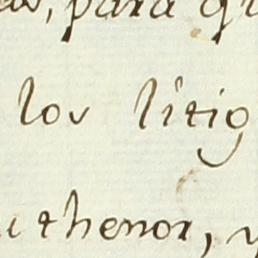 para
los litig
thenor,